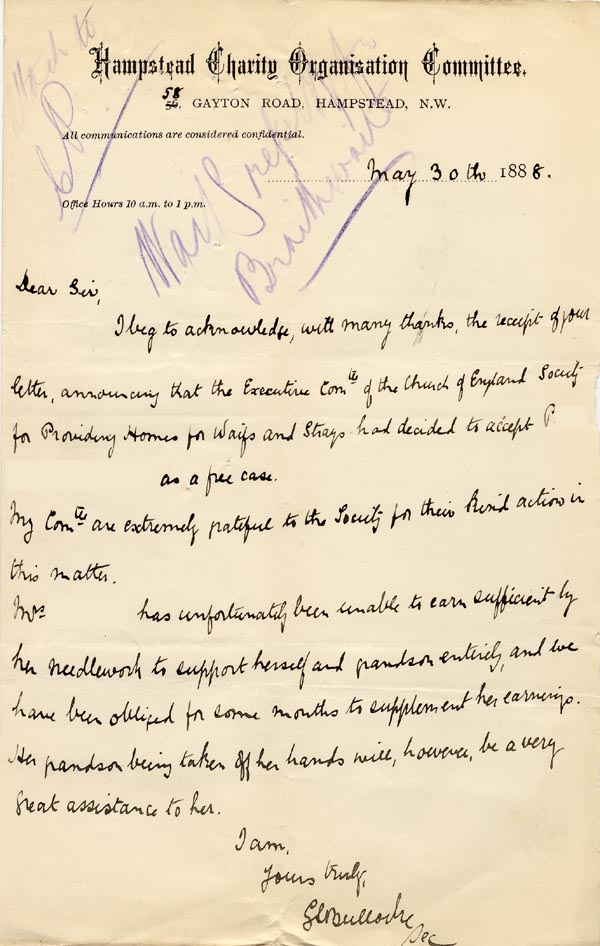 attach to
Hampstead Charity Organisation Committee.
58
56, GAYTON ROAD, HAMPSTEAD, N.W.
All communications are considered confidential.
May 30th 1888.
Office Hours 10 a.m. to 1 p.m.
Wait
Braithwaite
Dear Sir,
I beg to acknowledge, with many thanks, the receipt of your
letter, announcing that the Executive Comtee of the Church of England Society
for Providing Homes for Waifs and Strays had decided to accept P
as a free case.
My Comtee are extremely grateful to the Society for their kind action in
this matter.
Mrs has unfortunately been unable to earn sufficient by
her needlework to support herself and grandson entirely, and we
have been obliged for some months to supplement her earnings.
Her grandson being taken off her hands will, however, be a very
great assistance to her.
I am,
Yours truly,
Sec